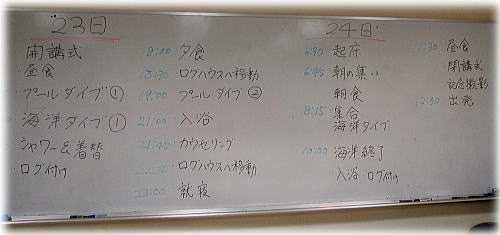 23日
開講式
昼食
プール・ダイブ①
海洋ダイブ①
シャワー&着替
ログ付け
18:00 夕食
18:30 ログハウスへ移動
19:00 プールダイブ②
21:00 入浴
21:45 カウンセリング
ログハウスへ移動
23:00 就寝
24日
6:30 起床
6:45 朝の集い
朝食
8:15 集合
海洋ダイブ
10:00 海洋終了
入浴 ログ付け
11:30 昼食
記念撮影
12:30 出発